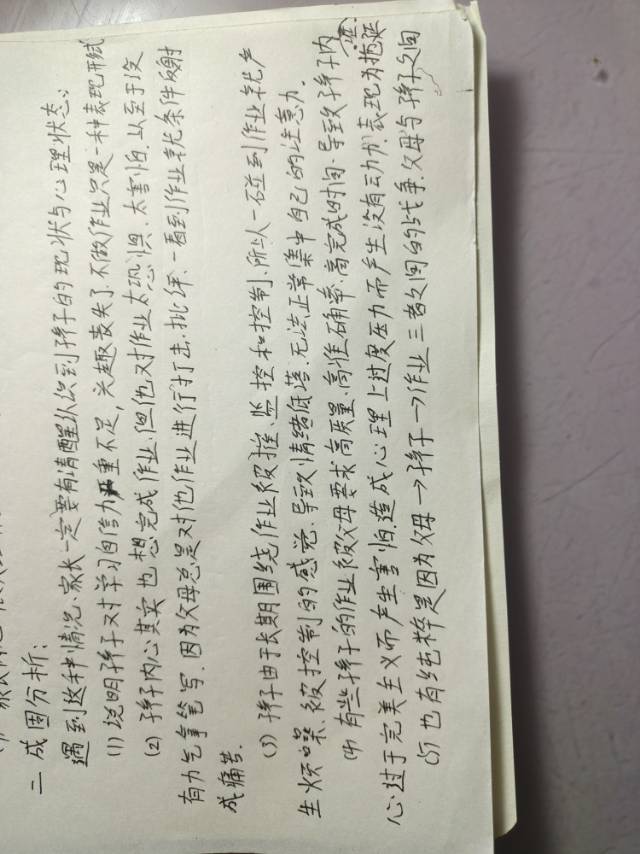 二 成因分析:
遇到这种情况、家长一定要有清醒认识到孩子的现状与心理状态:
(1) 说明孩子对学习自信力严重不足,兴趣丧失了.不做作业只是一种表现形式
(2) 孩子内心其实也想完成作业、但他又对作业太恐惧、太害怕.以至于没
有力气拿笔写.因为父母总是对他作业进行打击、批评、一看到作业就条件反射
成痛苦.
(3) 孩子由于长期围绕作业被推、监控和控制、所以一碰到作业就产
生烦噪、被控制的感觉、导致情绪低落、无法正常集中自己的注意力.
(4) 有些孩子的作业被父母要求高质量、高准确率、高完成时间、导致孩子内
心过于完美主义而产生害怕.造成心理上过度压力而产生没有动力.表现为拖延.
(5) 也有纯粹是因为父母→孩子→作业三者之间的战争.父母与孩子之间